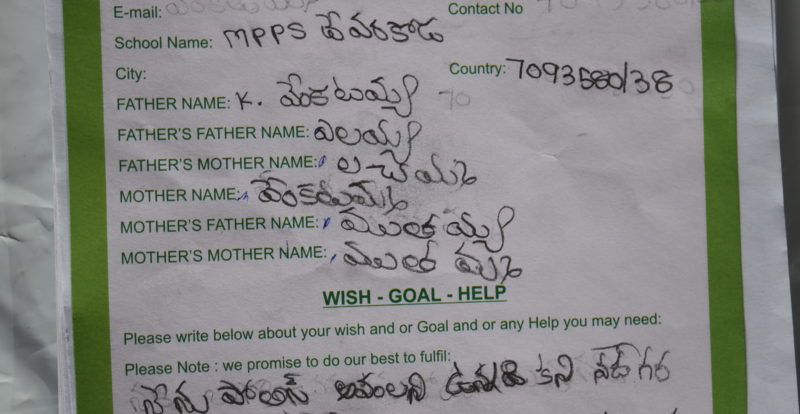 E-mail:
Contact No
School Name: MPPS దేవరకొండ
City:
Country: 7093580138
FATHER NAME: K. వెంకటయ్య
FATHER'S FATHER NAME: ఎలయ్య
FATHER'S MOTHER NAME: లచ్చమ్మ
MOTHER NAME: వెంకటమ్మ
MOTHER'S FATHER NAME: ముత్తయ్య
MOTHER'S MOTHER NAME: ముత్తమ్మ
WISH - GOAL - HELP
Please write below about your wish and or Goal and or any Help you may need:
Please Note : we promise to do our best to fulfil:
నేను పోలీస్ అవాలని ఉన్నది కని